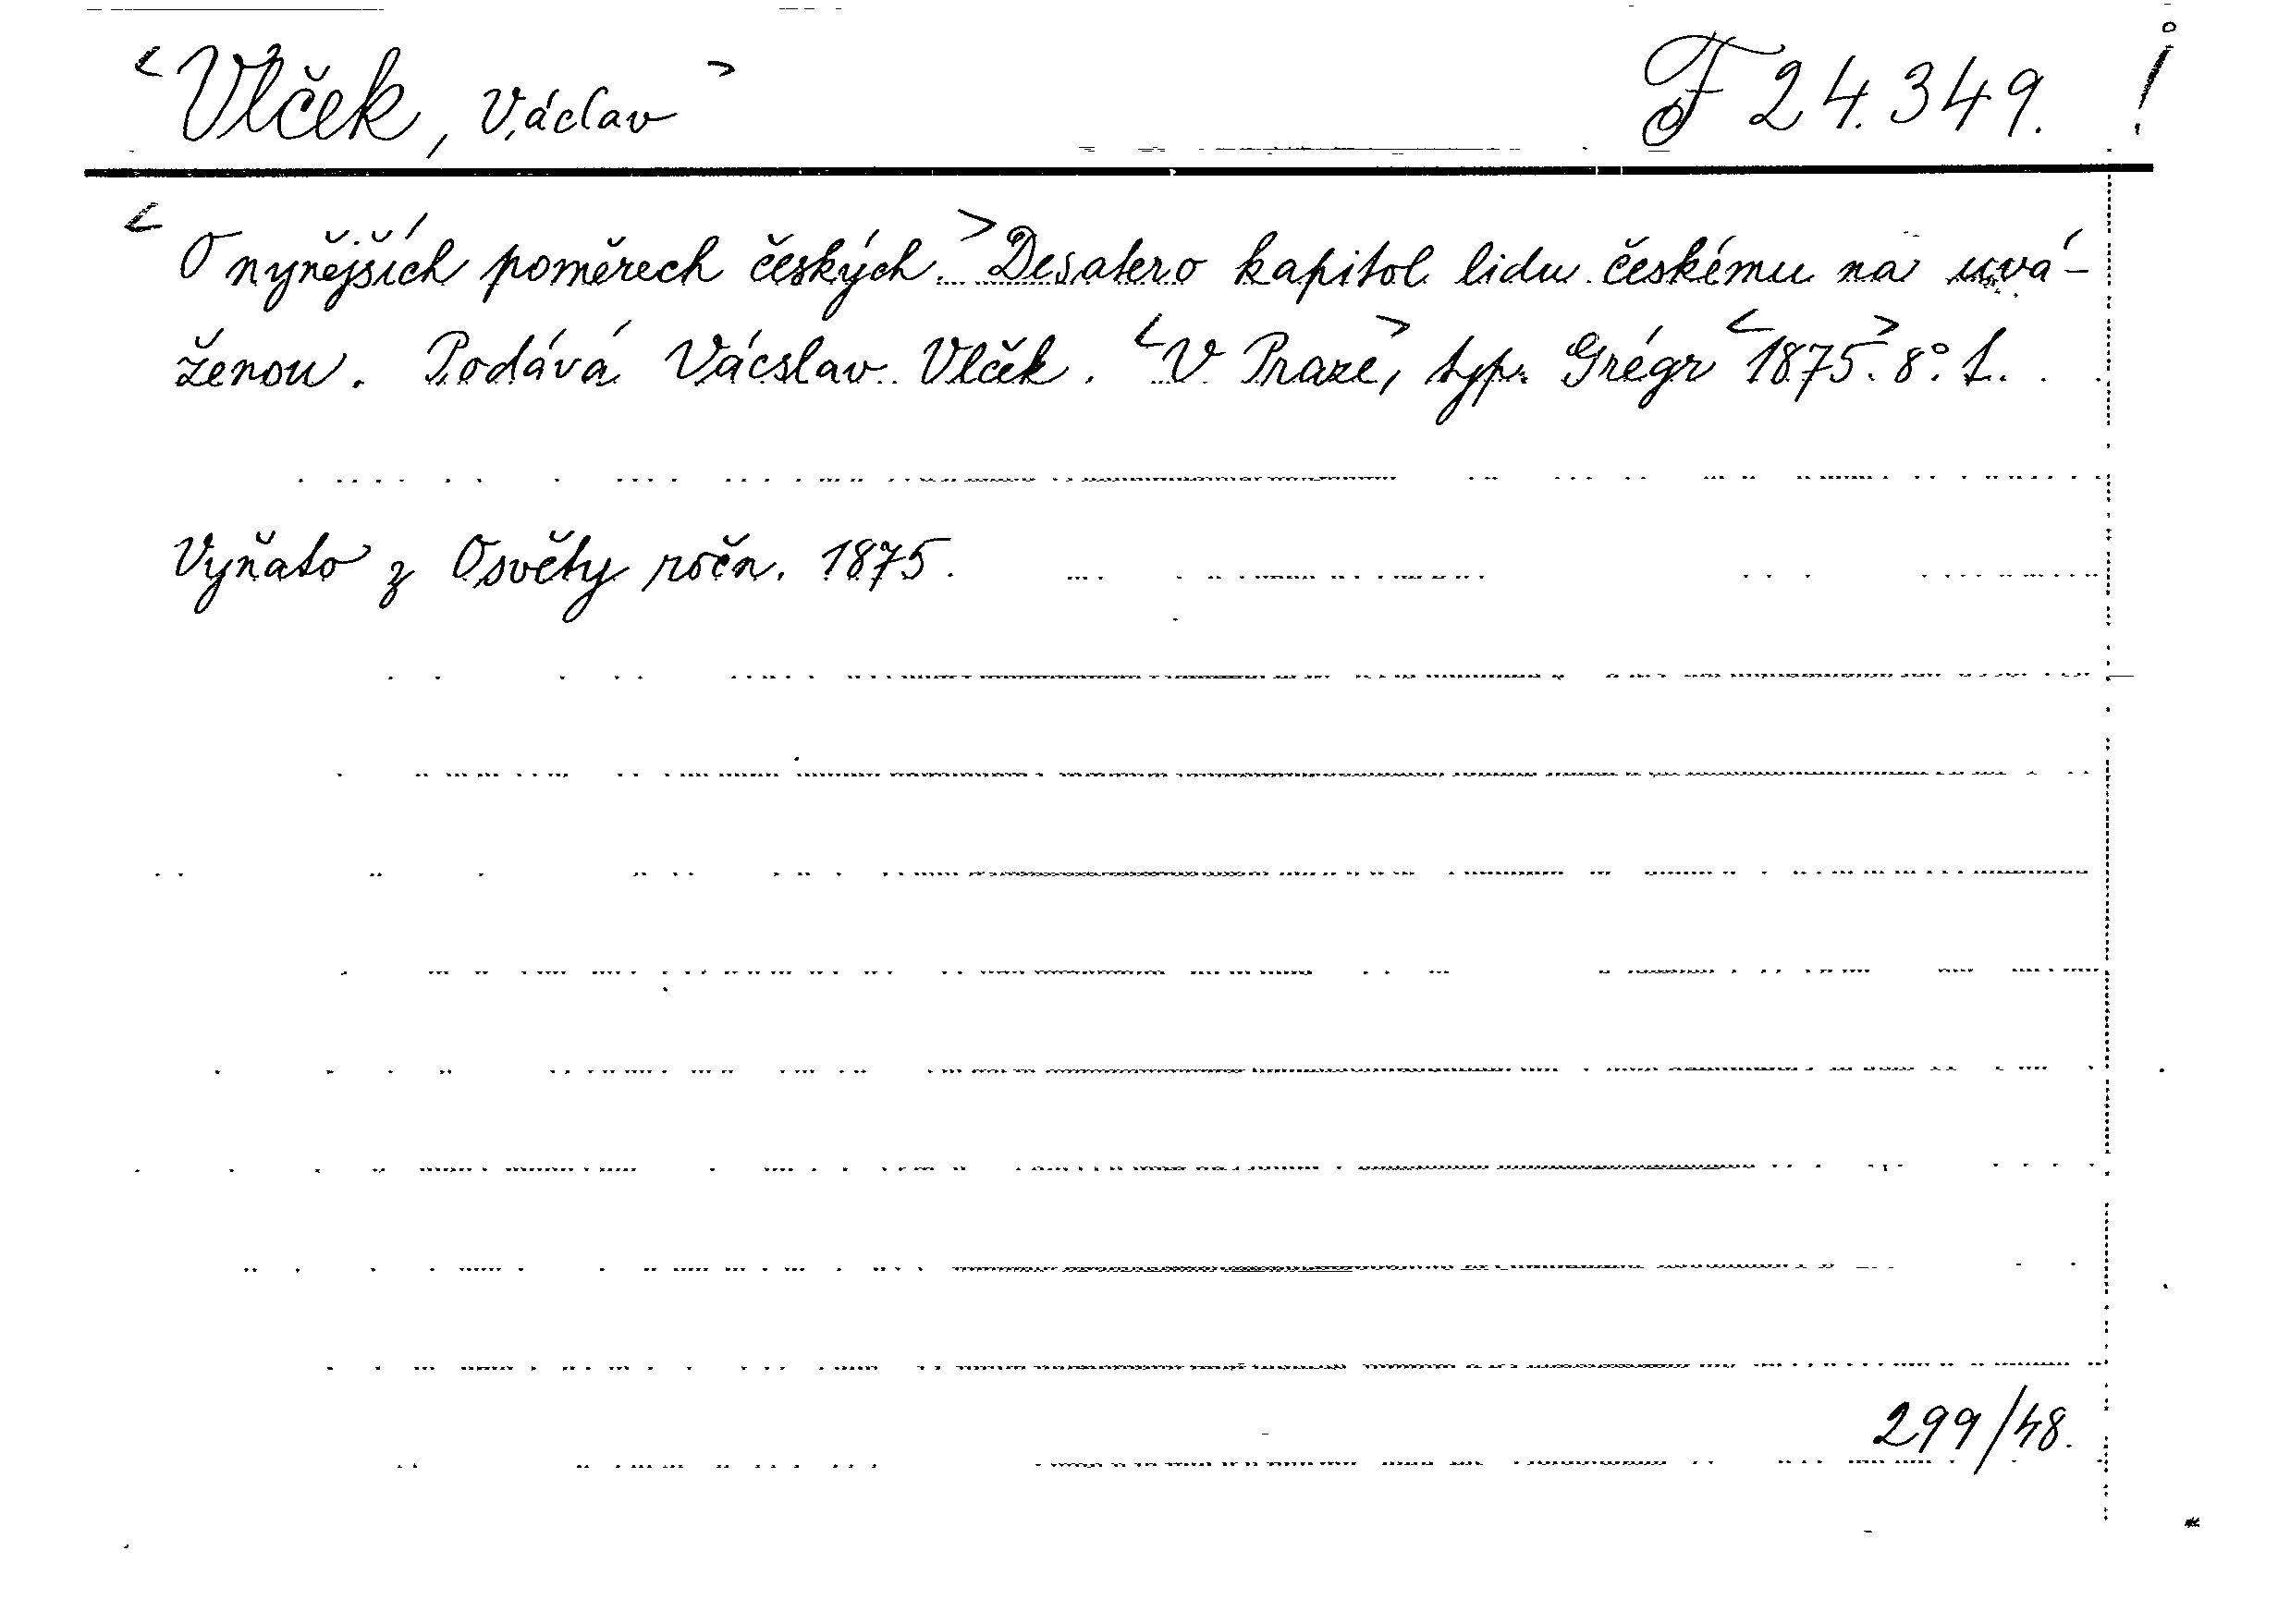 <Vlček, Václav> F 24.349. !
<O nynějších poměrech českých.> Desatero kapitol lidu českému na uvá-
ženou. Podává Vácslav Vlček. <V Praze>, typ. Grégr <1875>. 8°. 1.
Vyňato z Osvěty ročn. 1875.
299/48.